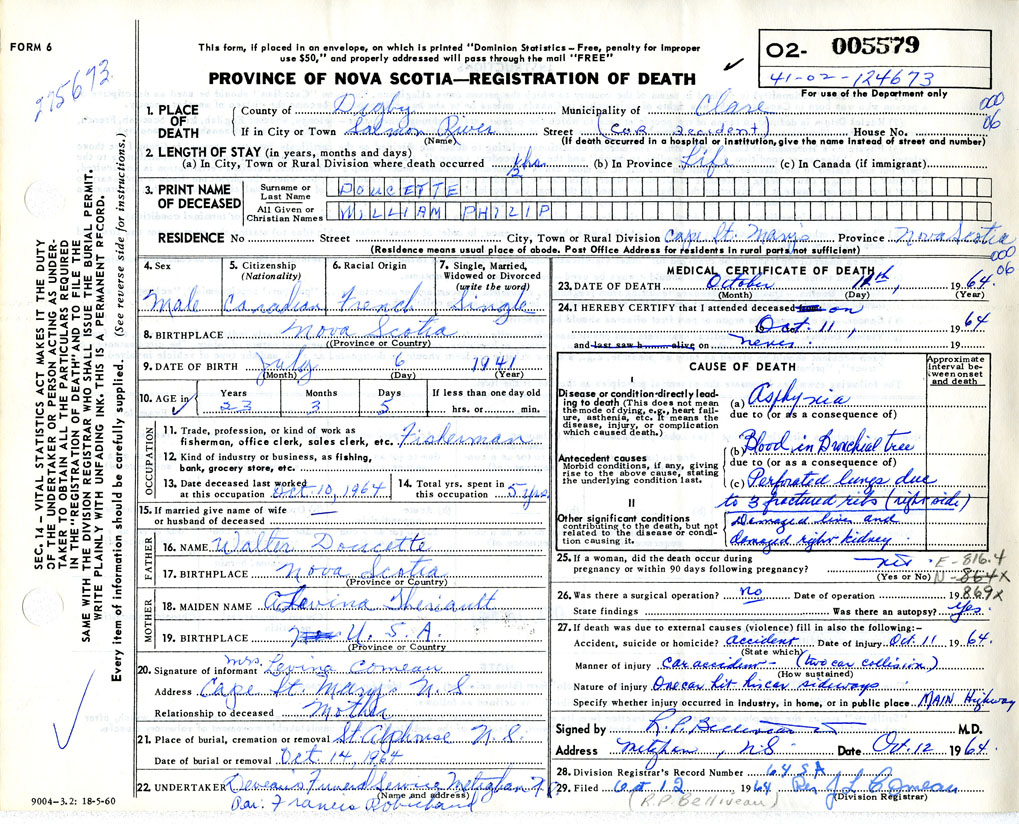 FORM 6
275673
This form, if placed in an envelope, on which is printed "Dominion Statistics – Free, penalty for improper
use $50," and properly addressed will pass through the mail "FREE"
PROVINCE OF NOVA SCOTIA—REGISTRATION OF DEATH
O2- 005579
41-02-124673
For use of the Department only
000
06
1. PLACE OF DEATH
County of Digby Municipality of Clare
If in City or Town Salmon River Street (car accident) House No.
(Name) (If death occurred in a hospital or institution, give the name instead of street and number)
2. LENGTH OF STAY (in years, months and days)
(a) In City, Town or Rural Division where death occurred hrs. (b) In Province Life (c) In Canada (if immigrant)
3. PRINT NAME OF DECEASED
Surname or Last Name DOUCETTE
All Given or Christian Names WILLIAM PHILIP
RESIDENCE No Street City, Town or Rural Division Cape St. Mary's Province Nova Scotia
(Residence means usual place of abode. Post Office Address for residents in rural parts not sufficient)
000
06
4. Sex
Male
5. Citizenship (Nationality)
Canadian
6. Racial Origin
French
7. Single, Married, Widowed or Divorced (write the word)
Single
8. BIRTHPLACE Nova Scotia
(Province or Country)
9. DATE OF BIRTH July 6 1941
(Month) (Day) (Year)
10. AGE in Years Months Days If less than one day old
23 3 5 hrs. or min.
OCCUPATION
11. Trade, profession, or kind of work as
fisherman, office clerk, sales clerk, etc. Fisherman
12. Kind of industry or business, as fishing,
bank, grocery store, etc.
13. Date deceased last worked
at this occupation Oct. 10, 1964
14. Total yrs. spent in
this occupation 5 yrs
15. If married give name of wife
or husband of deceased —
FATHER
16. NAME Walter Doucette
17. BIRTHPLACE Nova Scotia
(Province or Country)
MOTHER
18. MAIDEN NAME Levina Theriault
19. BIRTHPLACE U.S.A.
(Province or Country)
20. Signature of informant Mrs. Levina Comeau
Address Cape St. Mary's N.S.
Relationship to deceased Mother
21. Place of burial, cremation or removal St. Alphonse N.S.
Date of burial or removal Oct 14, 1964
22. UNDERTAKER Deveau's Funeral Service Meteghan
(Name and address)
Par: Francis Robichaud
9004-3.2: 18-5-60
SEC. 14 – VITAL STATISTICS ACT MAKES IT THE DUTY
OF THE UNDERTAKER OR PERSON ACTING AS UNDER-
TAKER TO OBTAIN ALL THE PARTICULARS REQUIRED
IN THE "REGISTRATION OF DEATH" AND TO FILE THE
SAME WITH THE DIVISION REGISTRAR WHO SHALL ISSUE THE BURIAL PERMIT.
WRITE PLAINLY WITH UNFADING INK. THIS IS A PERMANENT RECORD.
Every item of information should be carefully supplied. (See reverse side for instructions.)
MEDICAL CERTIFICATE OF DEATH
23. DATE OF DEATH October 11th, 1964
(Month) (Day) (Year)
24. I HEREBY CERTIFY that I attended deceased on
Oct. 11, 1964
and last saw h alive on never 19
CAUSE OF DEATH
Approximate Interval between onset and death
I
Disease or condition directly leading to death (This does not mean the mode of dying, e.g., heart failure, asthenia, etc. It means the disease, injury, or complication which caused death.)
(a) Asphyxia
due to (or as a consequence of)
Antecedent causes
Morbid conditions, if any, giving rise to the above cause, stating the underlying condition last.
(b) Blood in Bronchial tree
due to (or as a consequence of)
(c) Perforated lungs due
to 3 fractured ribs (right side)
II
Other significant conditions
contributing to the death, but not related to the disease or condition causing it.
Damaged liver and
damaged right kidney
25. If a woman, did the death occur during
pregnancy or within 90 days following pregnancy?
(Yes or No)
E-816.4
N-864x
869x
26. Was there a surgical operation? No Date of operation 19
State findings Was there an autopsy? Yes.
27. If death was due to external causes (violence) fill in also the following:–
Accident, suicide or homicide? accident Date of injury Oct. 11 1964.
(State which)
Manner of injury Car accident – (two car collision)
(How sustained)
Nature of injury One car hit his car sideways
Specify whether injury occurred in industry, in home, or in public place. MAIN Highway
Signed by R.P. Belliveau M.D.
Address Meteghan, N.S. Date Oct. 12 1964.
28. Division Registrar's Record Number 64
29. Filed Oct 12 1964 Rev J L Comeau
(R.P. Belliveau) (Division Registrar)